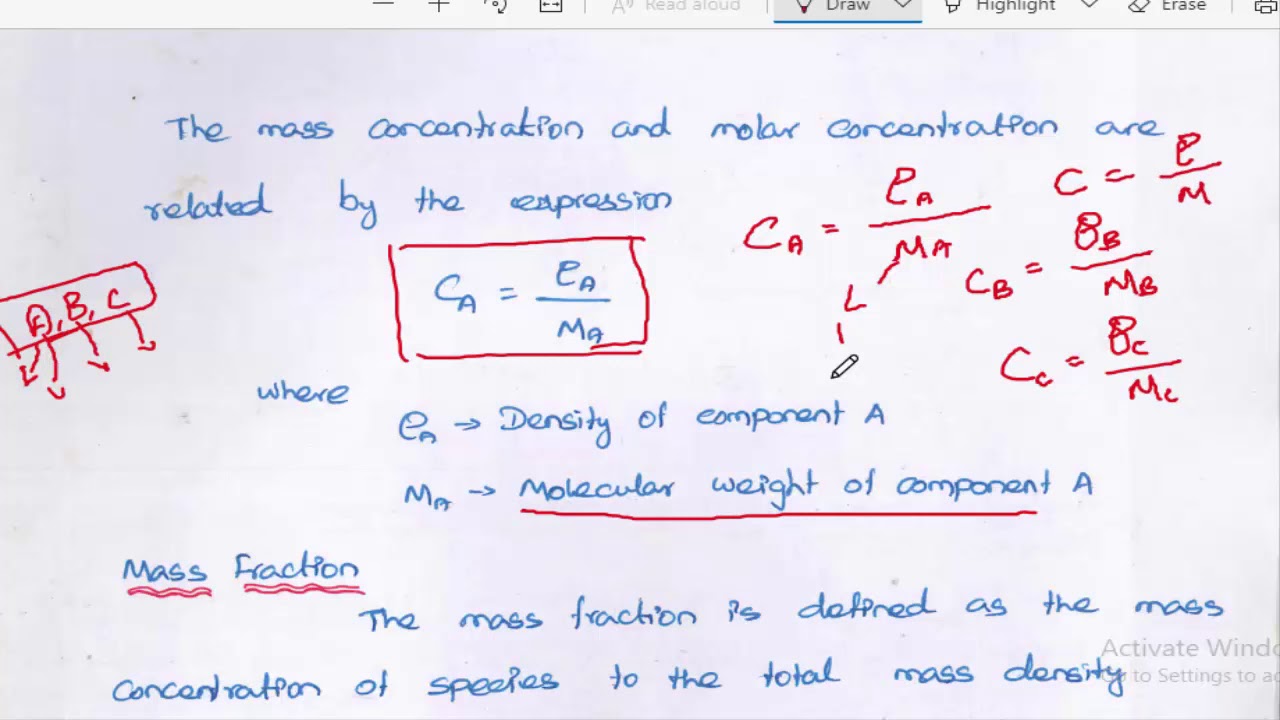 Read aloud
Draw
Highlight
Erase
The mass concentration and molar concentration are
related by the expression
C_A = ρ_A / M_A
C_A = ρ_A / M_A
C = ρ / M
C_B = ρ_B / M_B
C_C = ρ_C / M_C
A, B, C
where
ρ_A → Density of component A
M_A → Molecular weight of component A
Mass Fraction
The mass fraction is defined as the mass
concentration of species to the total mass density
Activate Windo
o to Settings to a